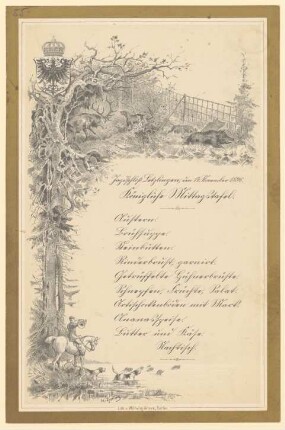 Jagdschloß Letzlingen, den 12. November 1890.
Königliche Mittagstafel.
Austern.
Steinbutten.
Rinderbrust garnirt.
Getrüffelte Hühnerbrüste.
Schnepfen, Früchte, Salat.
Artischokenböden mit Mark.
Ananasspeise.
Butter und Käse.
Nachtisch.